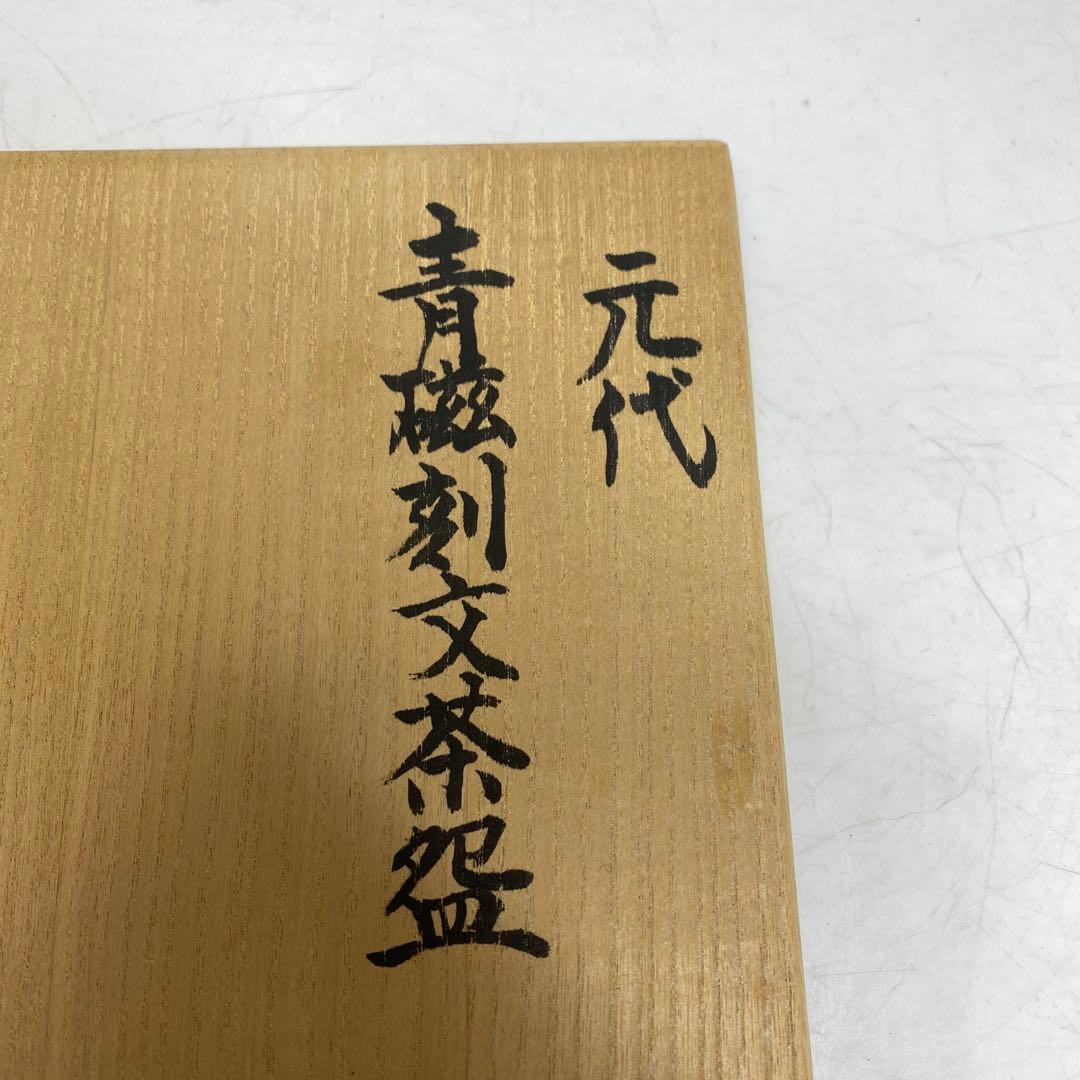 元代
青磁刻文茶盌